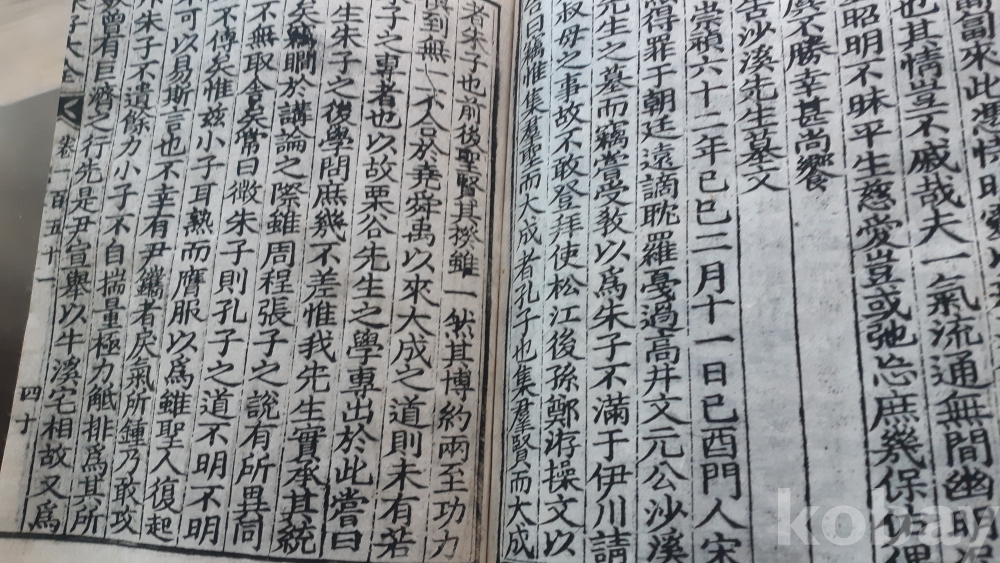 匍匐來此憑
也其情豈不戚哉夫一氣流通無間幽明
昭明不昧平生慈愛豈或弛忘庶幾保佑俾
不勝幸甚尙饗
告沙溪先生墓文
崇禎六十二年己巳二月十一日己酉門人宋
得罪于朝廷遠謫耽羅憂過高井文元公沙溪
先生之墓而竊嘗受敎以爲朱子不滿于伊川請
叔母之事故不敢登拜使松江後孫鄭洊操文以
告曰竊惟集羣聖而大成者孔子也集羣賢而大成
者朱子也前後聖賢其揆雖一然其博約兩至功力
到無一不合於堯舜禹以來大成之道則未有若
朱子之專者也以故栗谷先生之學專出於此嘗曰
生朱子之後學問庶幾不差惟我先生實承其統
矣竊瞷於講論之際雖周程張子之說有所異同
不無取舍矣常曰微朱子則孔子之道不明不明
不傳矣惟玆小子耳熟而膺服以爲雖聖人復起
不可以易斯言也不幸有尹鑴者戾氣所鍾乃敢攻
斥朱子不遺餘力小子不自揣量極力觝排爲其所
曾有巨濟之行先是尹宣擧以牛溪宅相故又爲
朱子大全 卷一百五十一 四十
kobay